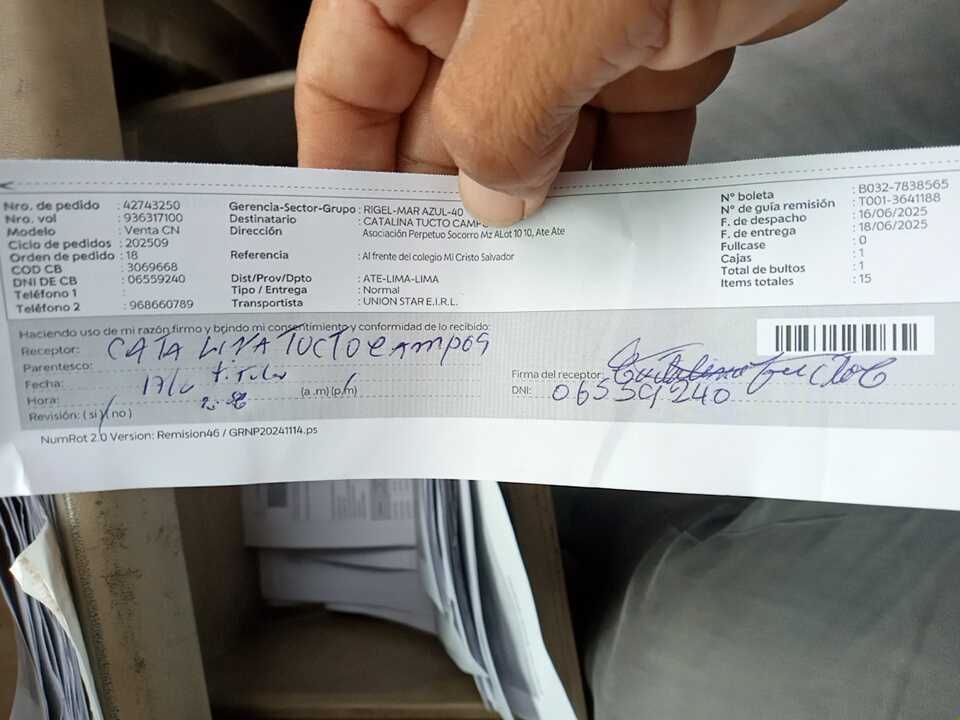 Nro. de pedido : 42743250
Nro. vol : 936317100
Modelo : Venta CN
Ciclo de pedidos : 202509
Orden de pedido : 18
COD CB : 3069668
DNI DE CB : 06559240
Teléfono 1 :
Teléfono 2 : 968660789
Gerencia-Sector-Grupo : RIGEL-MAR AZUL-40
Destinatario : CATALINA TUCTO CAMP
Dirección Asociación Perpetuo Socorro Mz ALot 10 10, Ate Ate
Referencia : Al frente del colegio Mi Cristo Salvador
Dist/Prov/Dpto : ATE-LIMA-LIMA
Tipo / Entrega : Normal
Transportista : UNION STAR E.I.R.L.
N° boleta : B032-7838565
N° de guía remisión : T001-3641188
F. de despacho : 16/06/2025
F. de entrega : 18/06/2025
Fullcase : 0
Cajas : 1
Total de bultos : 1
Items totales : 15
Haciendo uso de mi razón firmo y brindo mi consentimiento y conformidad de lo recibido:
Receptor: CATALINA TUCTO CAMPOS
Parentesco:
Fecha: 17/6
Hora: (a .m) (p.m)
Revisión: ( si ) ( no )
Firma del receptor: Catalina Tucto C
DNI: 06559240
NumRot 2.0 Version: Remision46 / GRNP20241114.ps